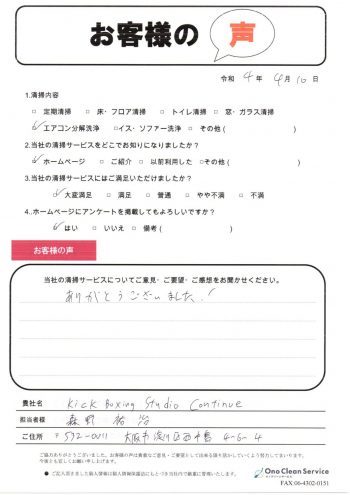 お客様の 声
令和 4 年 4 月 10 日
1.清掃内容
□ 定期清掃 □ 床・フロア清掃 □ トイレ清掃 □ 窓・ガラス清掃
☑エアコン分解洗浄 □イス・ソファー洗浄 □その他 ( )
2.当社の清掃サービスをどこでお知りになりましたか?
☑ホームページ □ ご紹介 □ 以前利用した □その他 ( )
3.当社の清掃サービスにはご満足いただけましたか?
☑大変満足 □ 満足 □ 普通 □ やや不満 □ 不満
4..ホームページにアンケートを掲載してもよろしいですか?
☑ はい □ いいえ □ 備考 ( )
お客様の声
当社の清掃サービスについてご意見・ご要望・ご感想をお聞かせください。
ありがとうございました!
貴社名 Kick Boxing Studio Continue
担当者様 森野 祐治
ご住所 〒532-0011 大阪市淀川区西中島 4-6-4
ご協力ありがとうございました。お客様の声は貴重なご意見・ご要望として
今後とも宜しくお願い申し上げます。
Ono Clean Service
オノクリーンサービス
FAX 06-4302-0151